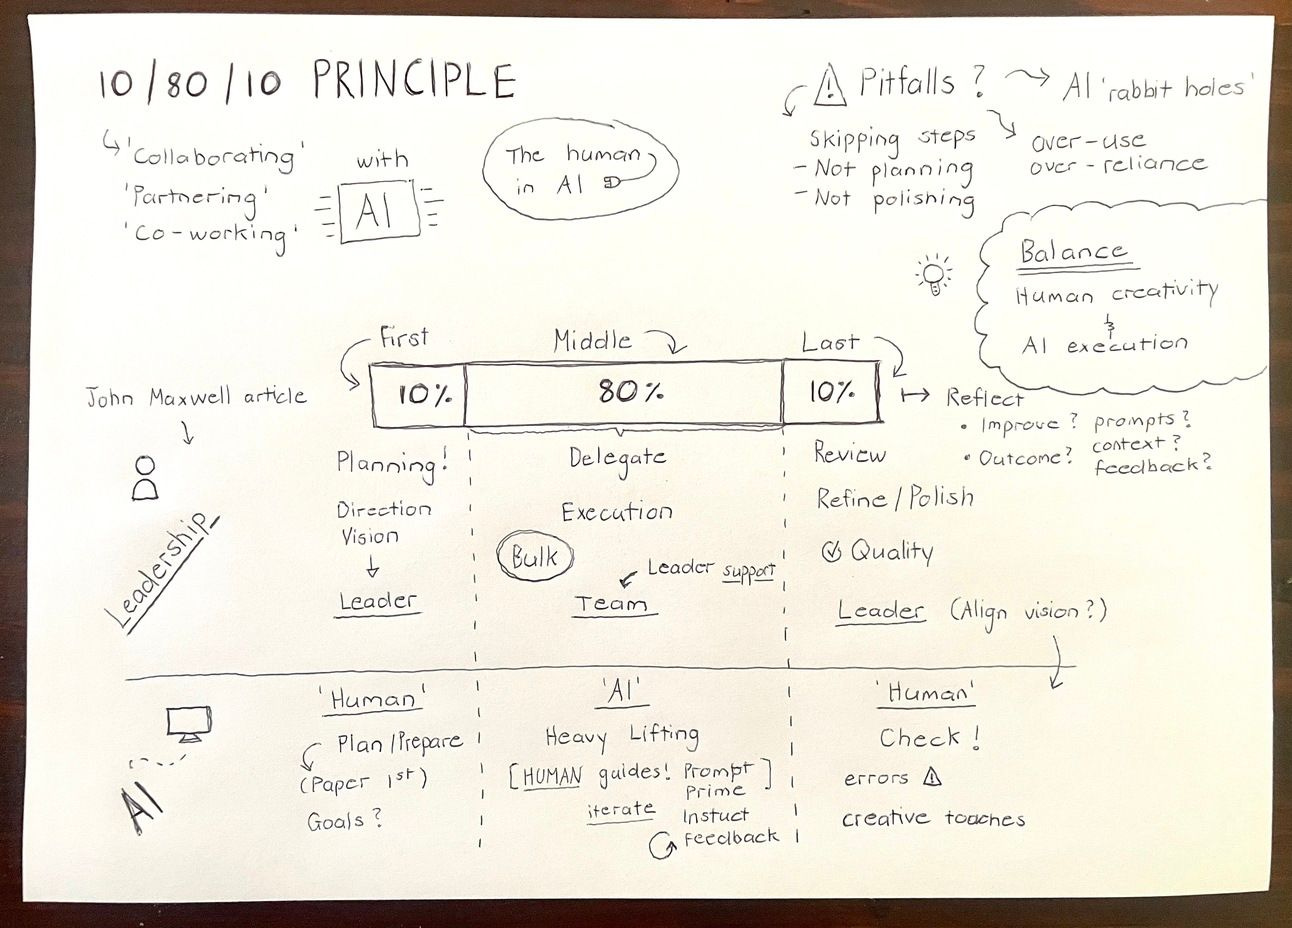 10/80/10 PRINCIPLE
'Collaborating'
'Partnering'
'Co-working'
with
AI
The human
in AI
Pitfalls ?
AI 'rabbit holes'
Skipping steps
- Not planning
- Not polishing
over-use
over-reliance
Balance
Human creativity
&
AI execution
First
Middle
Last
10%
80%
10%
John Maxwell article
Leadership
Reflect
• Improve ? prompts?
context?
• Outcome? feedback?
Planning!
Direction
Vision
Leader
Delegate
Execution
Bulk
Leader support
Team
Review
Refine/Polish
Quality
Leader (Align vision?)
AI
'Human'
Plan/Prepare
(Paper 1st)
Goals?
'AI'
Heavy Lifting
[HUMAN guides! Prompt]
Prime
iterate Instuct
Feedback
'Human'
Check!
errors
creative touches